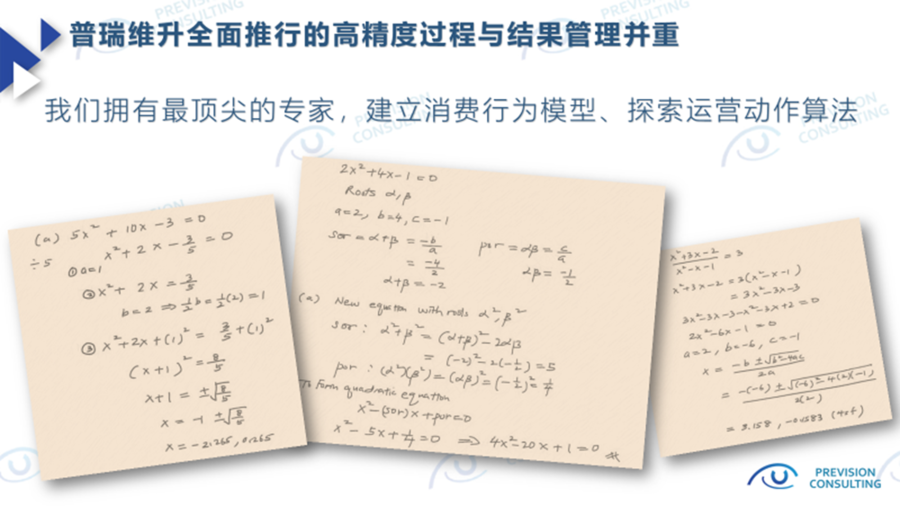 普瑞维升全面推行的高精度过程与结果管理并重
我们拥有最顶尖的专家，建立消费行为模型、探索运营动作算法
(a) 5x² + 10x - 3 = 0
÷5 x² + 2x - 3/5 = 0
① a=1
② x² + 2x = 3/5
b = 2 ⇒ ½b = ½(2) = 1
③ x² + 2x + (1)² = 3/5 + (1)²
(x+1)² = 8/5
x+1 = ±√8/5
x = -1 ±√8/5
x = -2.265, 0.265
2x² + 4x - 1 = 0
Roots α, β
a=2, b=4, c=-1
sor = α+β = -b/a
= -4/2
α+β = -2
por = αβ = c/a
αβ = -1/2
(a) New equation with roots α², β²
sor: α²+β² = (α+β)² - 2αβ
= (-2)² - 2(-½) = 5
por: (α²)(β²) = (αβ)² = (-½)² = ¼
To form quadratic equation
x² - (sor)x + por = 0
x² - 5x + ¼ = 0 ⇒ 4x² - 20x + 1 = 0
x²+3x-2 / x²-x-1 = 3
x²+3x-2 = 3(x²-x-1)
= 3x²-3x-3
3x²-3x-3-x²-3x+2=0
2x²-6x-1=0
a=2, b=-6, c=-1
x = -b ±√b²-4ac / 2a
= -(-6) ±√(-6)²-4(2)(-1) / 2(2)
= 3.158, -0.1583 (4sf)
PREVISION
CONSULTING